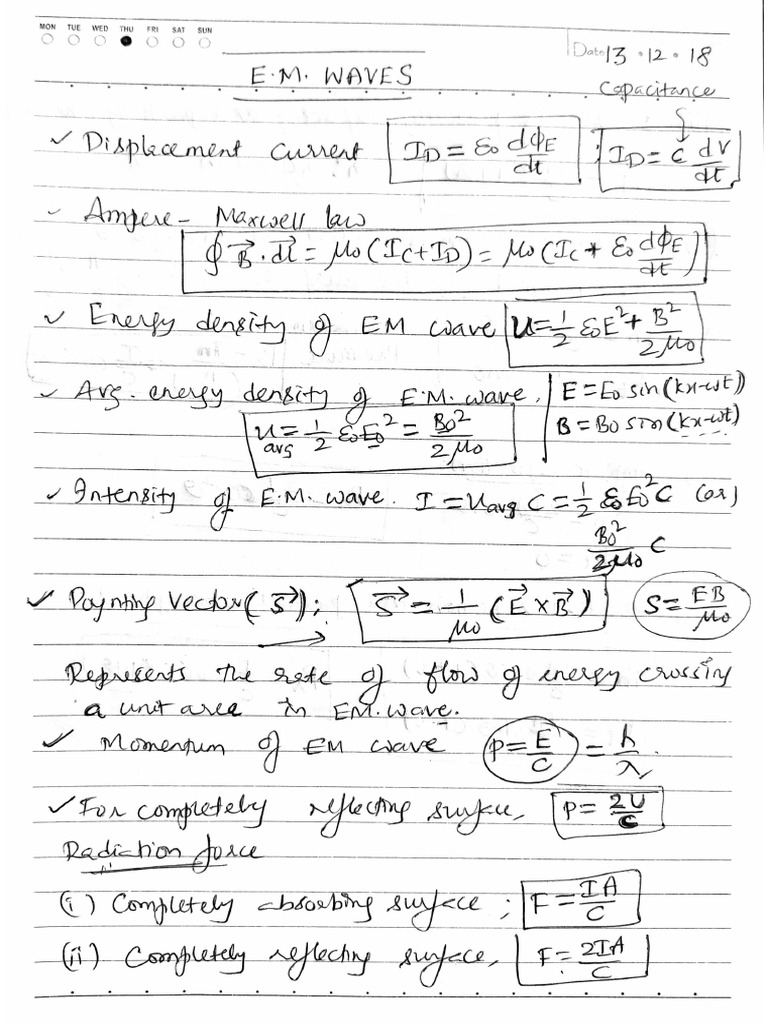 MON TUE WED THU FRI SAT SUN
Date 13 . 12 . 18
E.M. WAVES
Capacitance
✓ Displacement current I_D = ε₀ dϕ_E/dt ; I_D = C dV/dt
✓ Ampere - Maxwell law
∮ B⃗ . dl⃗ = μ₀ (I_C + I_D) = μ₀ (I_C + ε₀ dϕ_E/dt)
✓ Energy density of EM wave U = 1/2 ε₀E² + B²/2μ₀
✓ Avg. energy density of E.M. wave. E = E₀ sin(kx-ωt)
u_avg = 1/2 ε₀E₀² = B₀²/2μ₀ B = B₀ sin(kx-ωt)
✓ Intensity of E.M. wave. I = u_avg C = 1/2 ε₀E₀²C (or)
B₀²/2μ₀ C
✓ Poynting Vector (S⃗); S⃗ = 1/μ₀ (E⃗ x B⃗) S = EB/μ₀
Represents the rate of flow of energy crossing
a unit area in EM.wave.
✓ Momentum of EM wave P = E/C = h/λ.
✓ For completely reflecting surface, P = 2U/C
Radiation force
(i) Completely absorbing surface ; F = IA/C
(ii) Completely reflecting surface, F = 2IA/C